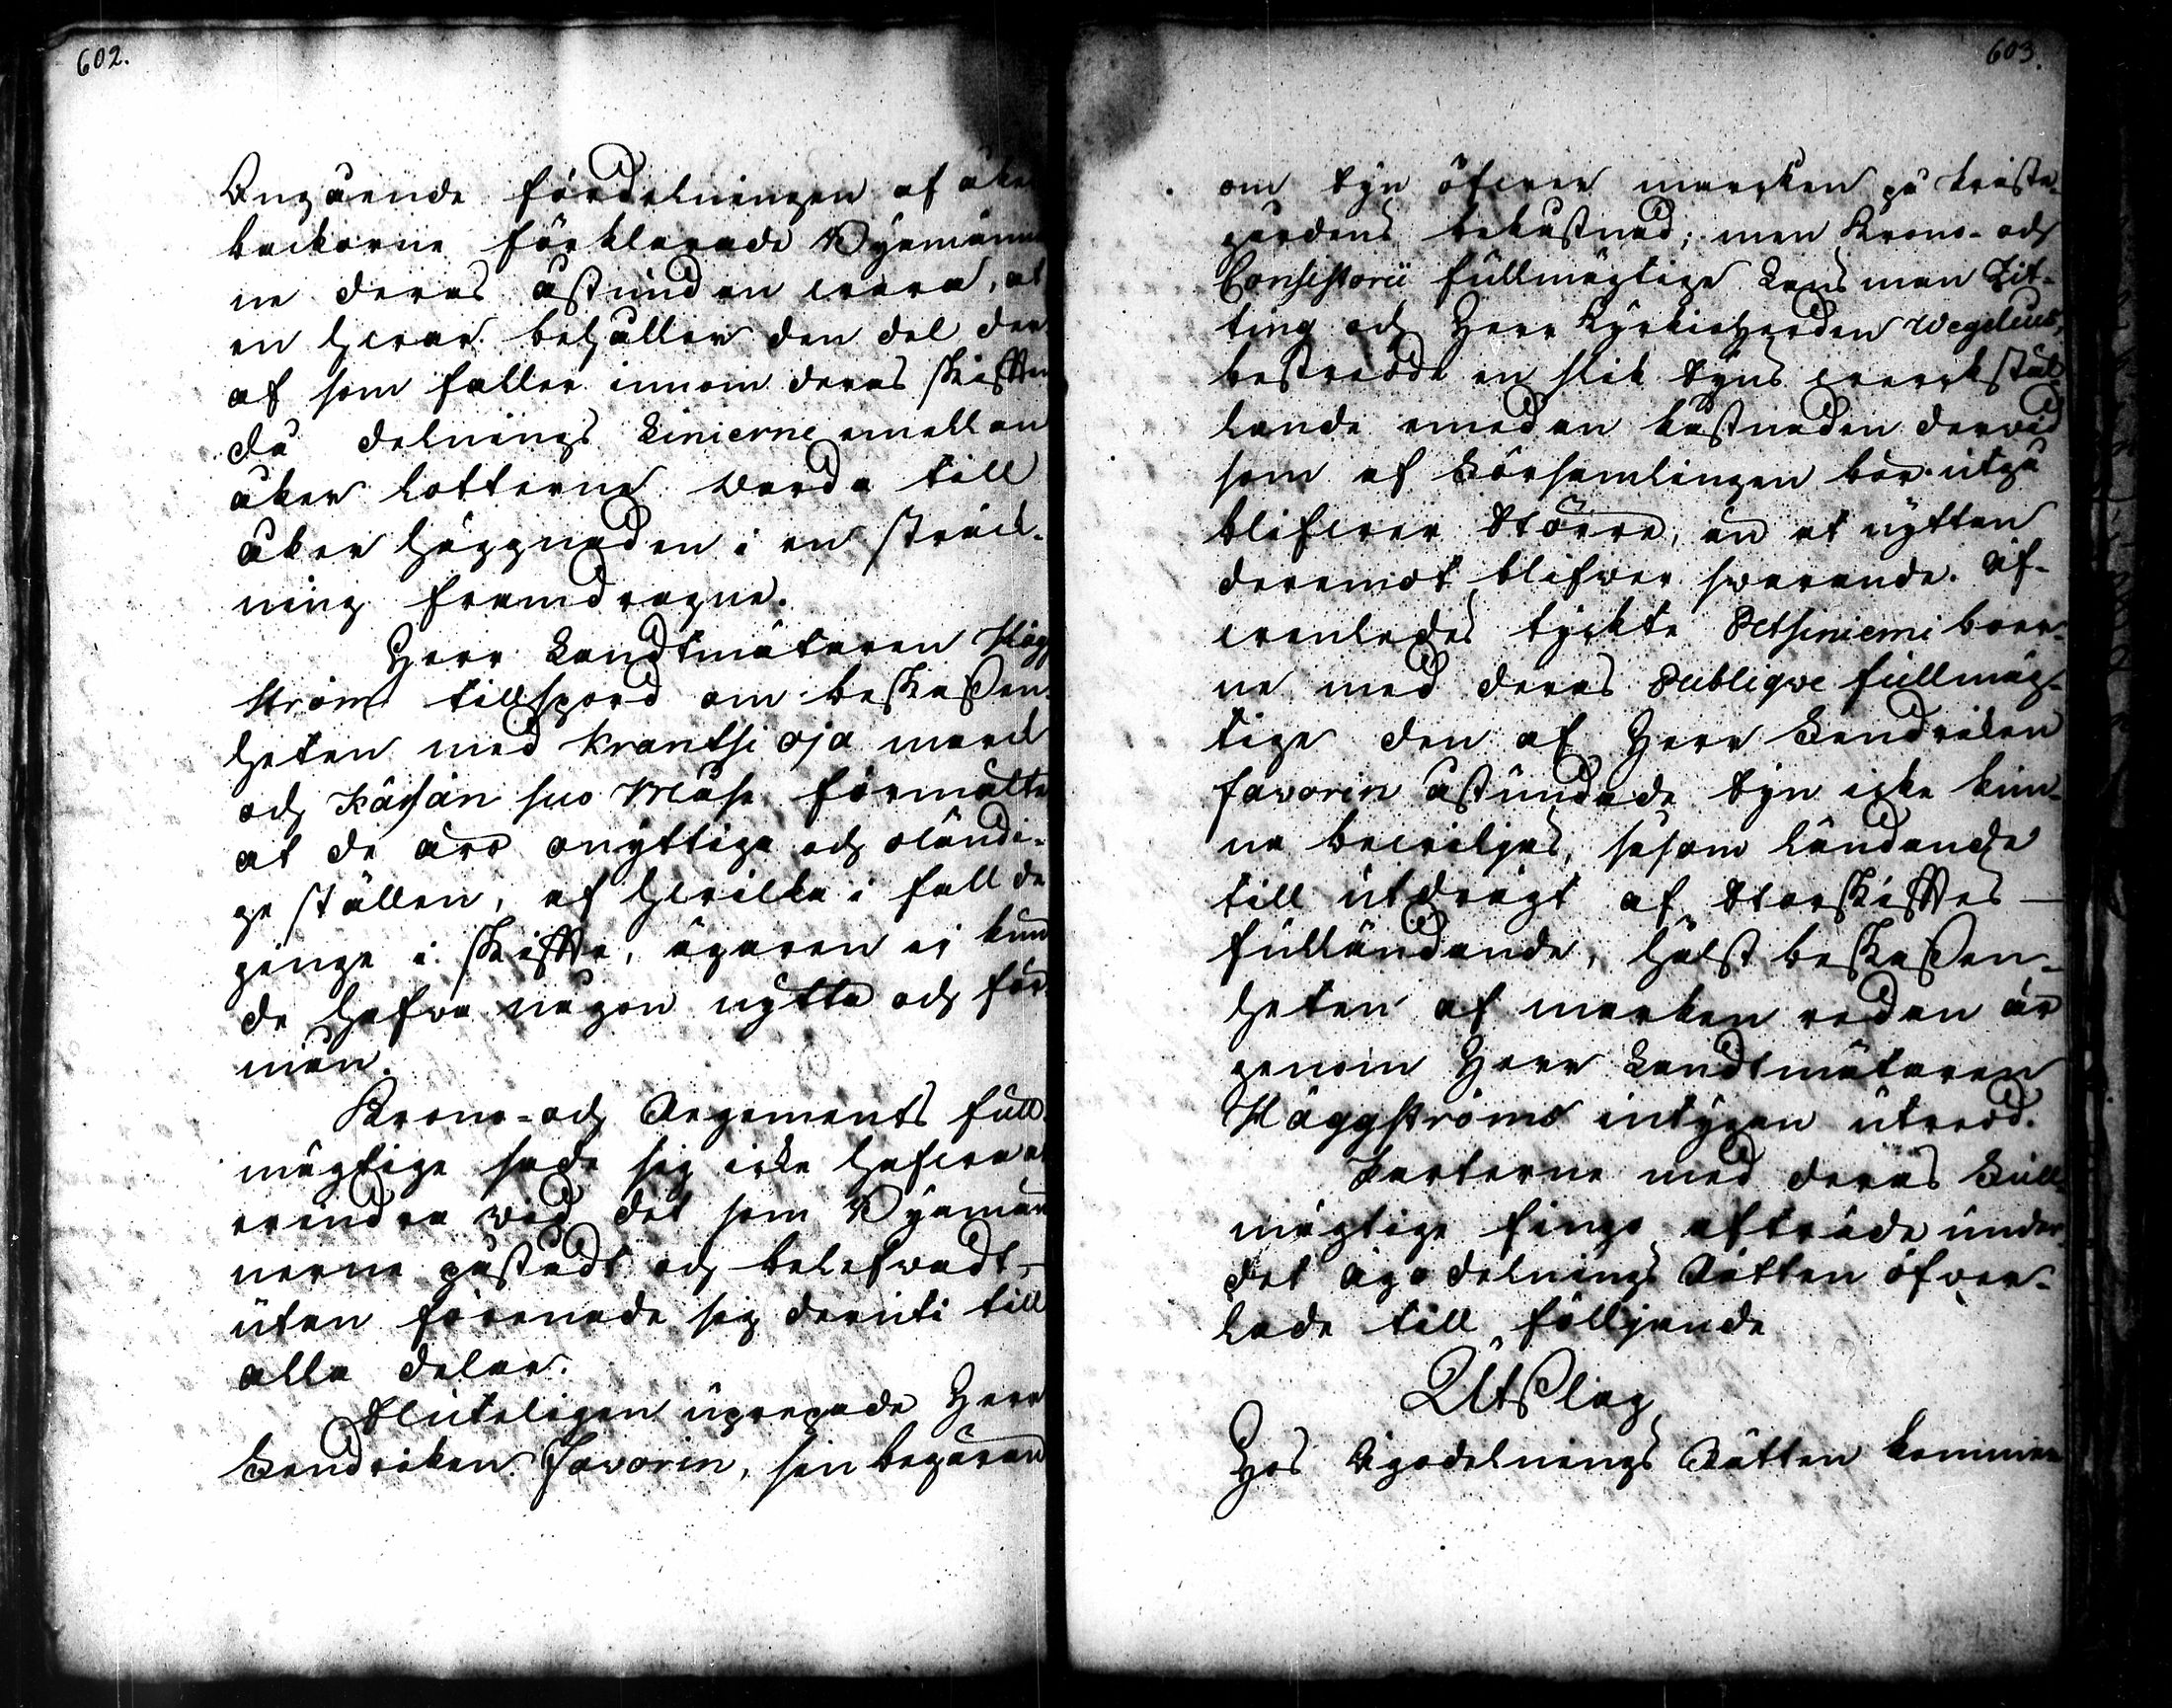 602.
Angående fördelningen af åker
backorne förklarade Byamänne
ne deras åstundan wara, at
en hwar behåller den del der
af som faller innom deras skiften
då delnings Linierne emellan
åker lotterne warda till
åker häggnaden i en sträck-
ning framdragne.
Herr Landtmätaren Hägg
ström tillspord om beskaffen-
heten med Krantsi oja marck
och Kärsän suo Måse förmälte
at de äro onyttiga och oländi-
ge ställen, af hwilka i fall de
ginge i skifte, ägaren ej kun
de hafwa någon nytta och för
mån.
Krono- och Regements full
mägtige sade sig icke hafwa at
erindra wid det som Byamän
nerne påstådt och belefwadt
utan förenade sig deruti till
alla delar.
Sluteligen uprepade Herr
Lendriken Favorin, sin begäran
603.
om syn öfwer marcken på Prästa-
gårdens bekåstnad; men Krono- och
Consistorii fullmägtige Länsman Zit-
ting och Herr Kyrkioherden Wegelius,
bestredde en slik syns werckstäl-
lande emedan kåstnaden derwid
som af Församlingen bör utgå
blifwer större, än at nyttan
deremot blifwer swarande. Äf-
wenledes tyckte Petsiniemi boer-
ne med deras Publiqve fullmäg-
tige den af Herr Lendriken
Favorin åstundade syn icke kun-
na bewiljas, såsom ländande
till utdrägt af Storskiftes
fulländande, hälst beskaffen-
heten af marken redan är
genom Herr Landtmätaren
Häggströms intygan utredd.
Parterne med deras Full-
mägtige fingo afträde under
det Ägodelnings Rätten öfwer-
lade till följande
Utslag
Hos Ägodelnings Rätten kommer